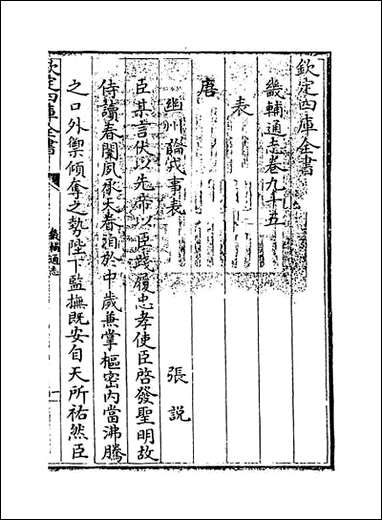 欽定四庫全書
畿輔通志卷九十五
表
唐
幽州論戎事表 張説
臣某言伏以先帝以臣踐履忠孝使臣啓發聖明故
侍讀春闈夙承天眷洎於中歲兼掌樞密内當沸騰
之口外禦傾奪之勢陛下監撫既安自天所祐然臣
欽定四庫全書
畿輔通志
一